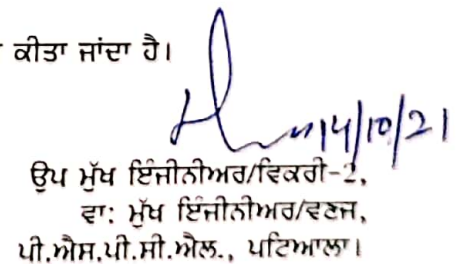 ਕੀਤਾ ਜਾਂਦਾ ਹੈ।
14/10/21
ਉਪ ਮੁੱਖ ਇੰਜੀਨੀਅਰ/ਵਿਕਰੀ-2,
ਵਾ: ਮੁੱਖ ਇੰਜੀਨੀਅਰ/ਵਣਜ,
ਪੀ.ਐਸ.ਪੀ.ਸੀ.ਐਲ., ਪਟਿਆਲਾ।